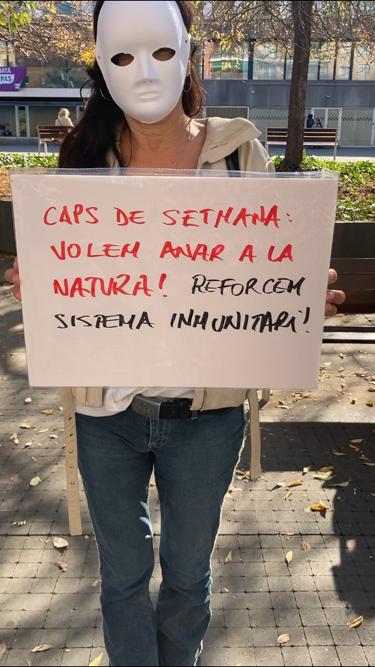 CAPS DE SETMANA:
VOLEM ANAR A LA
NATURA! REFORCEM
SISTEMA INMUNITARI!